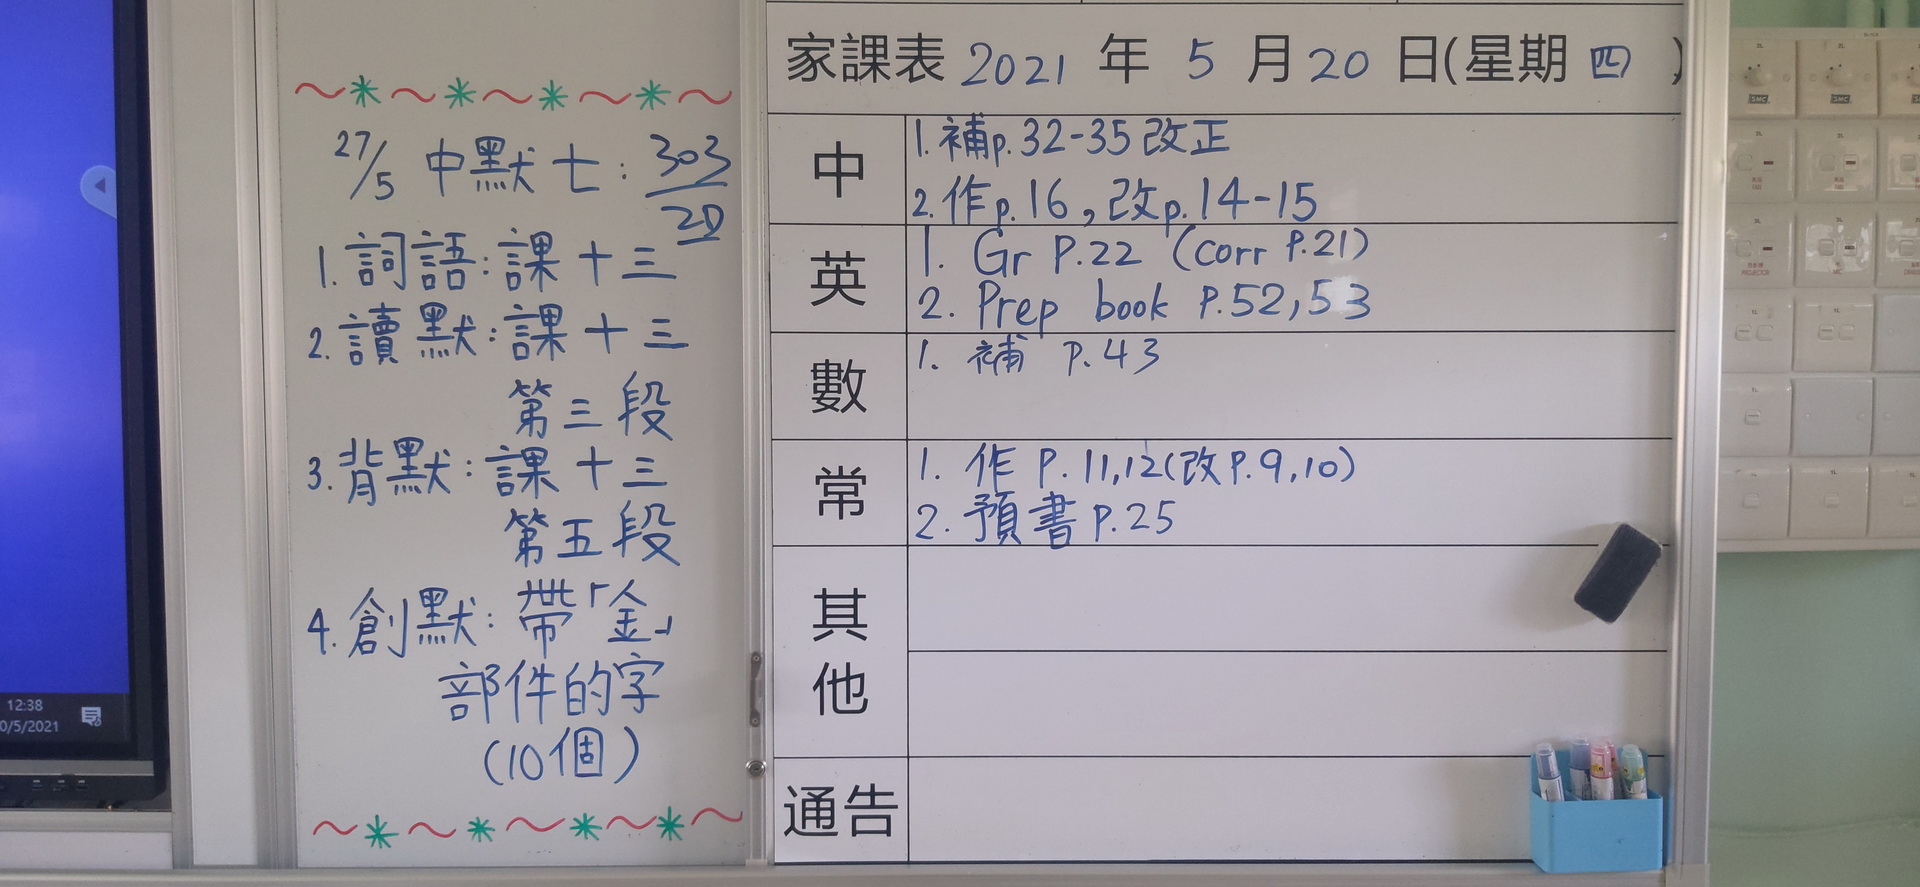 27/5 中默七: 303/20
1. 詞語: 課十三
2. 讀默: 課十三
第三段
3. 背默: 課十三
第五段
4. 創默: 帶「金」
部件的字
(10個)
12:38
0/5/2021
家課表 2021 年 5 月 20 日(星期 四 )
中
1. 補p. 32-35 改正
2. 作p. 16, 改p. 14-15
英
1. Gr P.22 (corr P.21)
2. Prep book P.52, 53
數
1. 補 P.43
常
1. 作 P.11,12(改P.9,10)
2. 預書 P.25
其他
通告